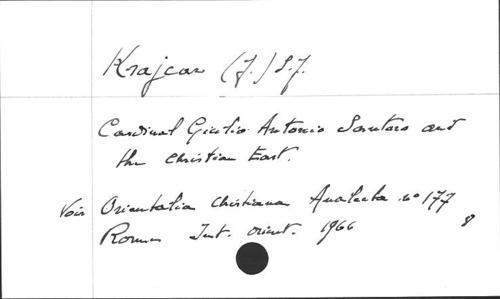 Krajcar (J.) S.J.
Cardinal Giulio Antonio Santoro and
the Christian East.
Voir Orientalia Christiana Analecta no 177
Rome Inst. orient. 1966 8